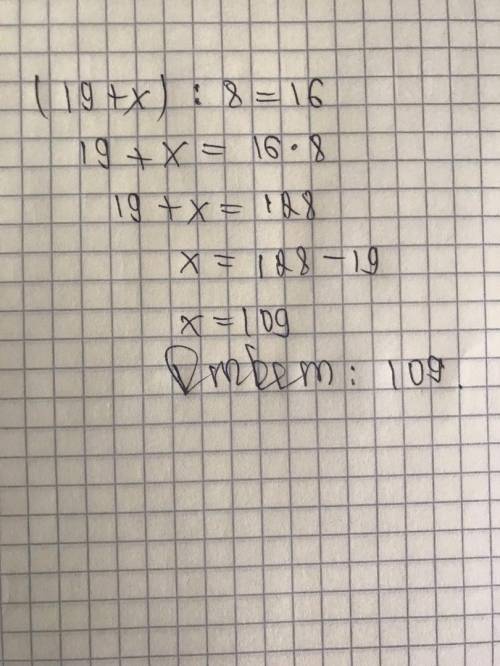 (19+x) : 8 = 16
19 + x = 16 · 8
19 + x = 128
x = 128 - 19
x = 109
Ответ: 109.